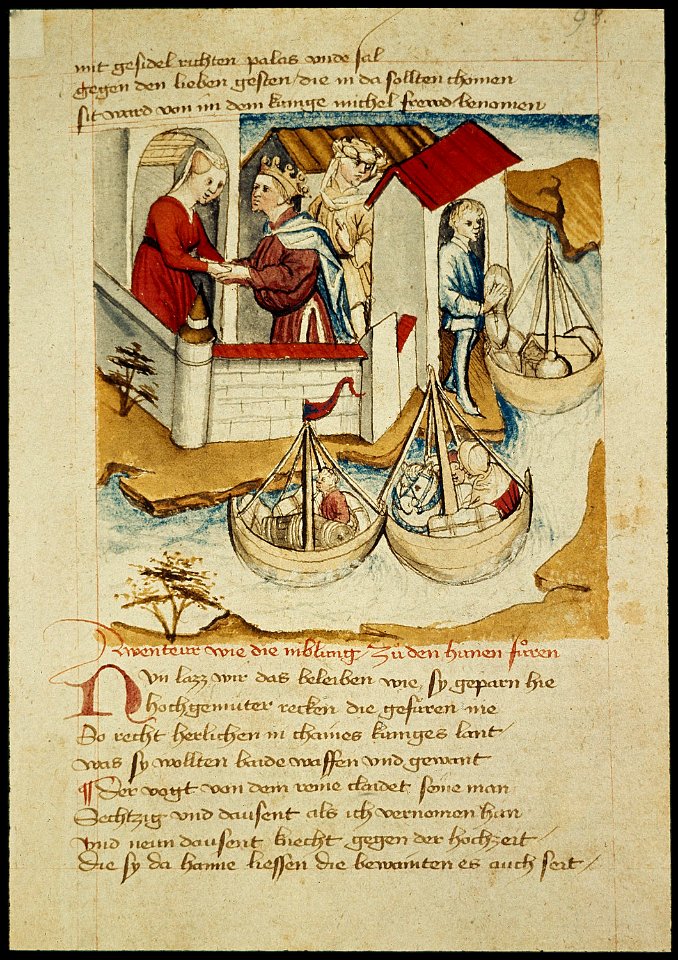 98.
mit gesidel richten palas vnde sal
gegen den lieben gesten / die in da sollten chomen
sit ward von im dem kunige michel frewd benomen
Awenteur wie die niblung / Zů den hunen fůren
Nvn lazz wir das beleiben wie sy geparn hie
hochgemuter recken die gefuren nie
So recht herlichen in chaines kuniges lant /
was sy wollten baide waffen vnd gewant
¶ Der vogt von dem reine claidet seine man
Sechtzig vnd dausent als ich vernomen han
vnd neun dausent knecht gegen der hochzeit /
die sy da haime liessen die bewainten es auch seit /